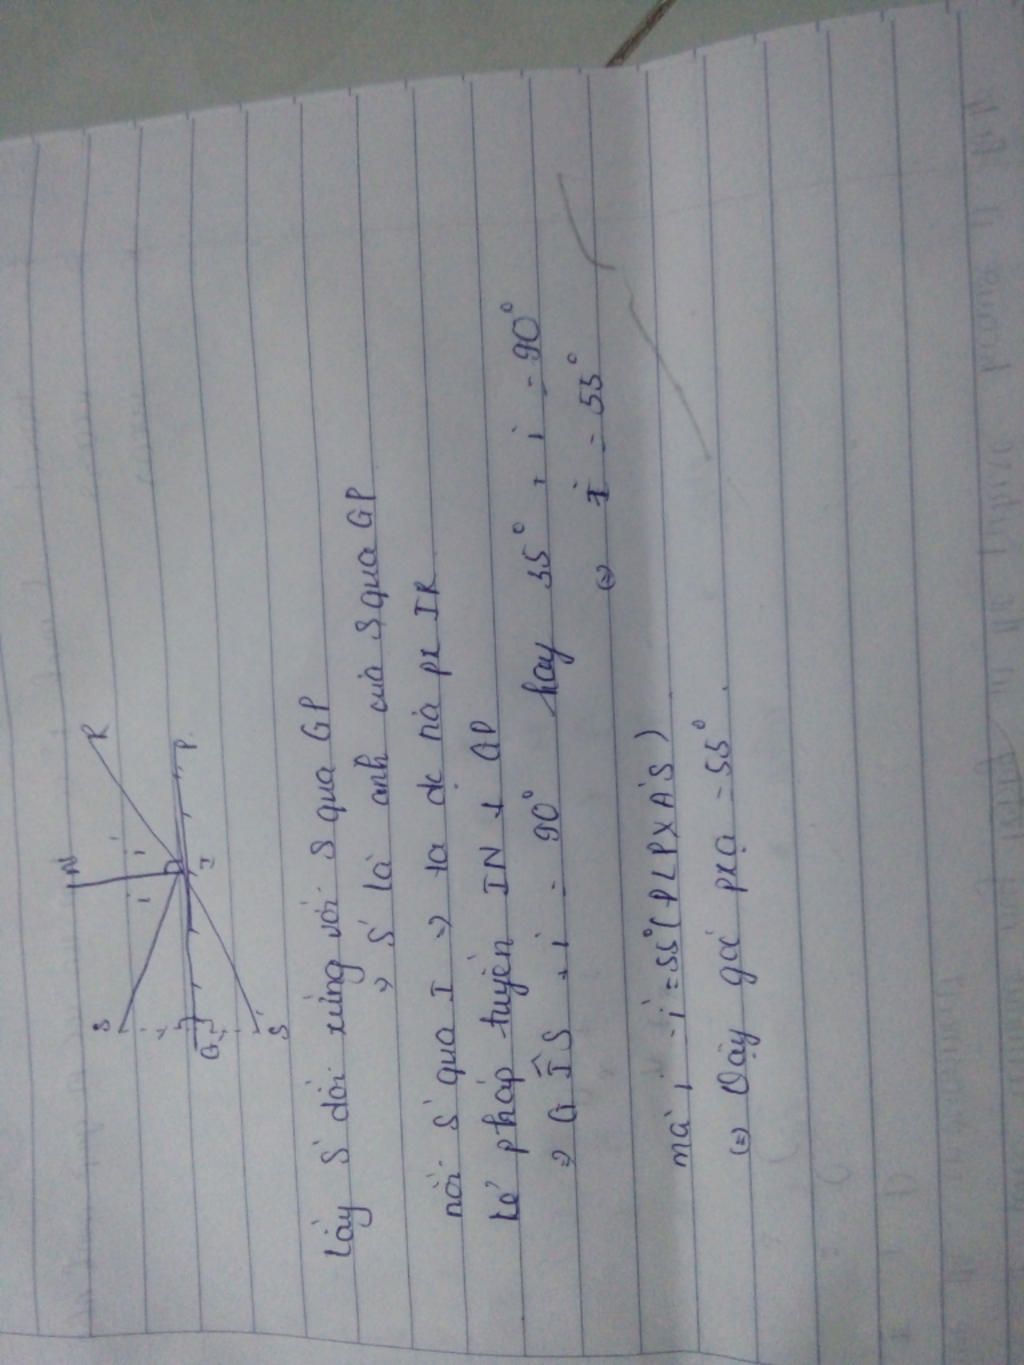 N
R
S
i
i'
G
I
P
S'
Lấy S' đối xứng với S qua GP
=> S' là ảnh của S qua GP
nối S' qua I => ta đc tia px IR
kẻ pháp tuyến IN ⊥ GP
=> GÎS + i = 90° hay 35° + i = 90°
(=) i = 55°
mà i = i' = 55° (ĐLPXAS)
(=) Vậy góc pxạ = 55°